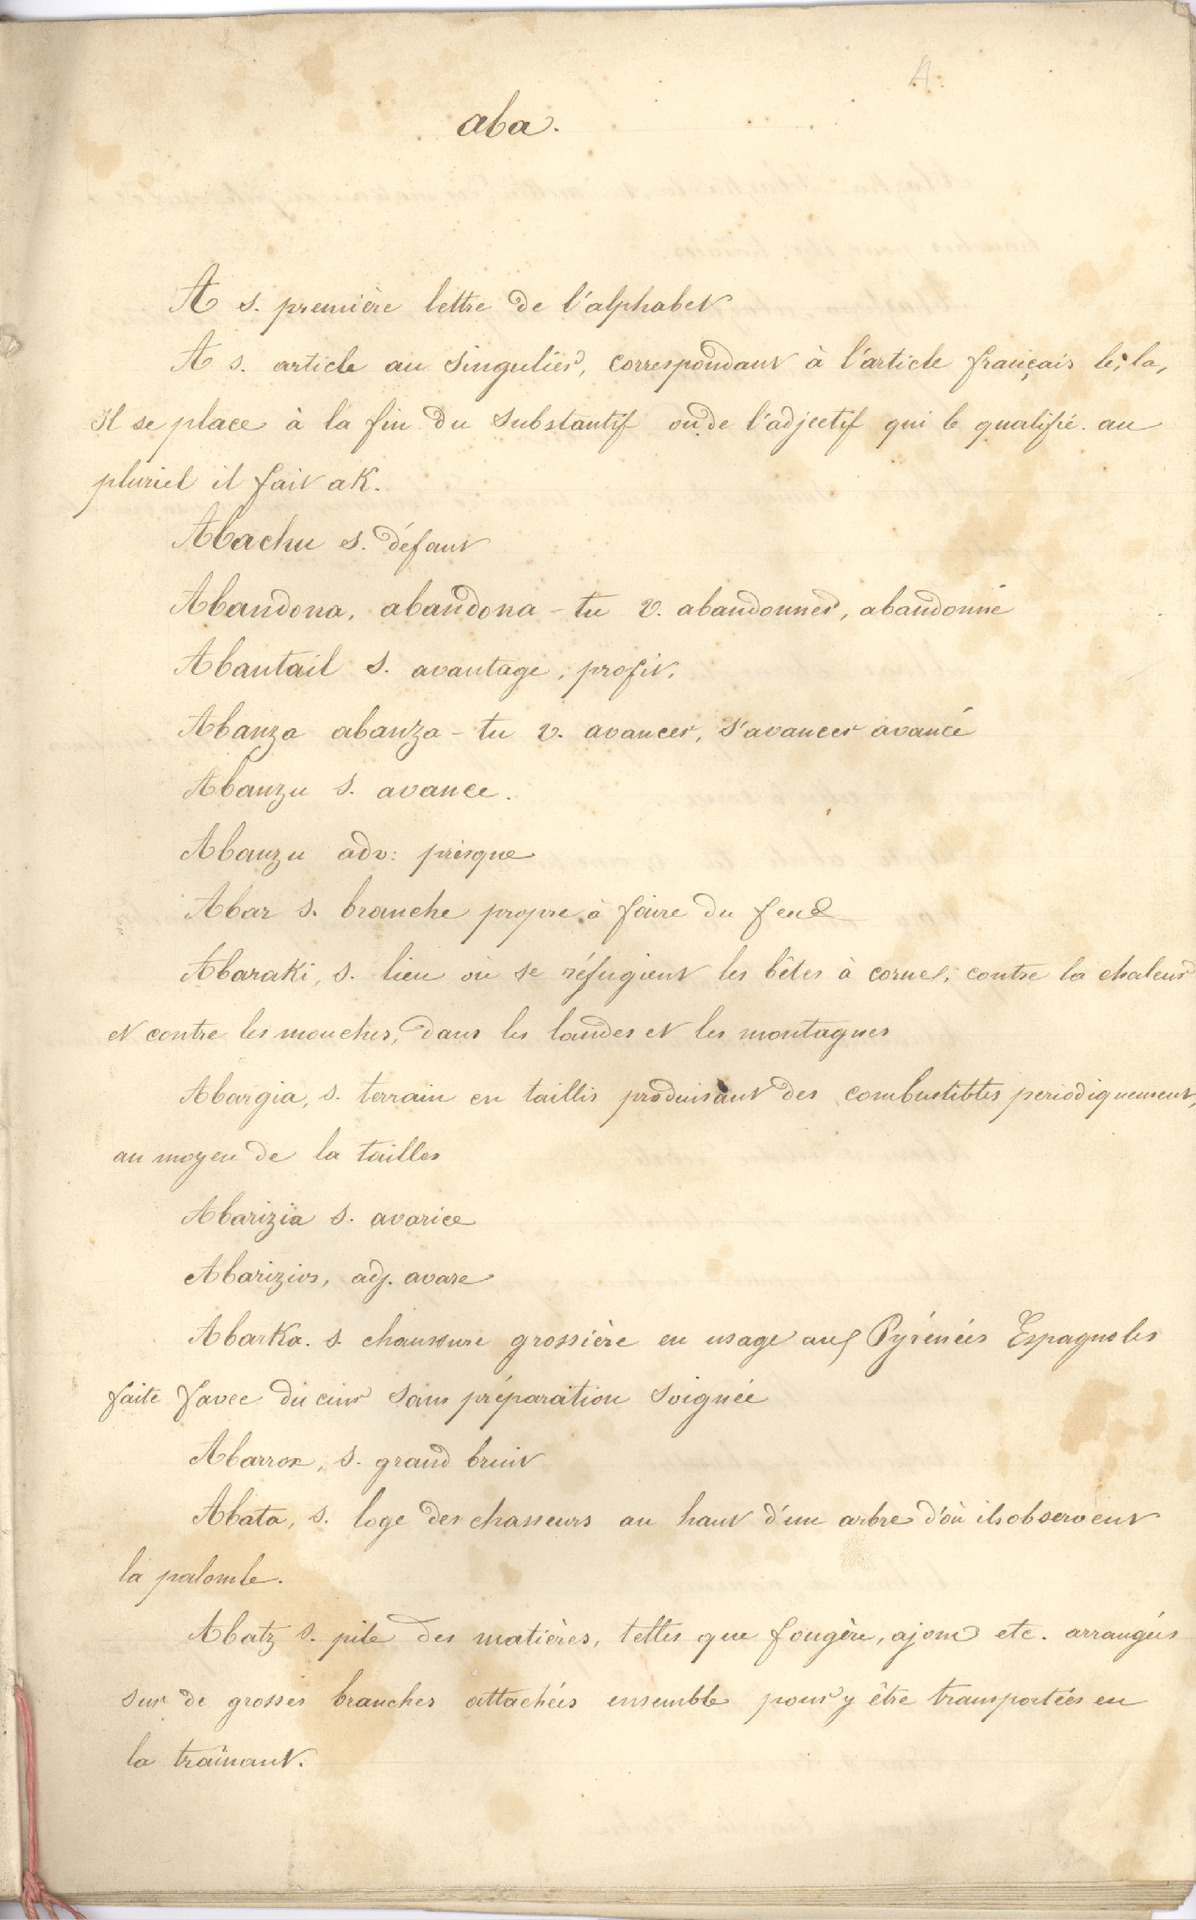 A.
aba.
A s. première lettre de l'alphabet
A s. article au singulier, correspondant à l'article français le, la,
Il se place à la fin du substantif ou de l'adjectif qui le qualifie. au
pluriel il fait ak.
Abachu s. défaut
Abandona, abandona-tu v. abandonner, abandonné
Abantail s. avantage, profit,
Abanza abanza-tu v. avancer, s'avancer avancé
Abanzu s. avance.
Abanzu adv: presque
Abar s. branche propre à faire du feu
Abaraki, s. lieu où se réfugient les bêtes à cornes, contre la chaleur
et contre les mouches, dans les landes et les montagnes
Abargia, s. terrain en taillis produisant des combustibles periodiquement,
au moyen de la tailles
Abarizia s. avarice
Abarizios, adj. avare
Abarka. s. chaussure grossière en usage aux Pyrénées Espagnoles
faite avec du cuir sans préparation soignée
Abarrox, s. grand bruit
Abata, s. loge des chasseurs au haut d'un arbre d'où ils observent
la palombe.
Abatz s. pile des matières, telles que fougère, ajonc etc. arrangées
sur de grosses branches attachées ensemble pour y être transportées en
la traînant.